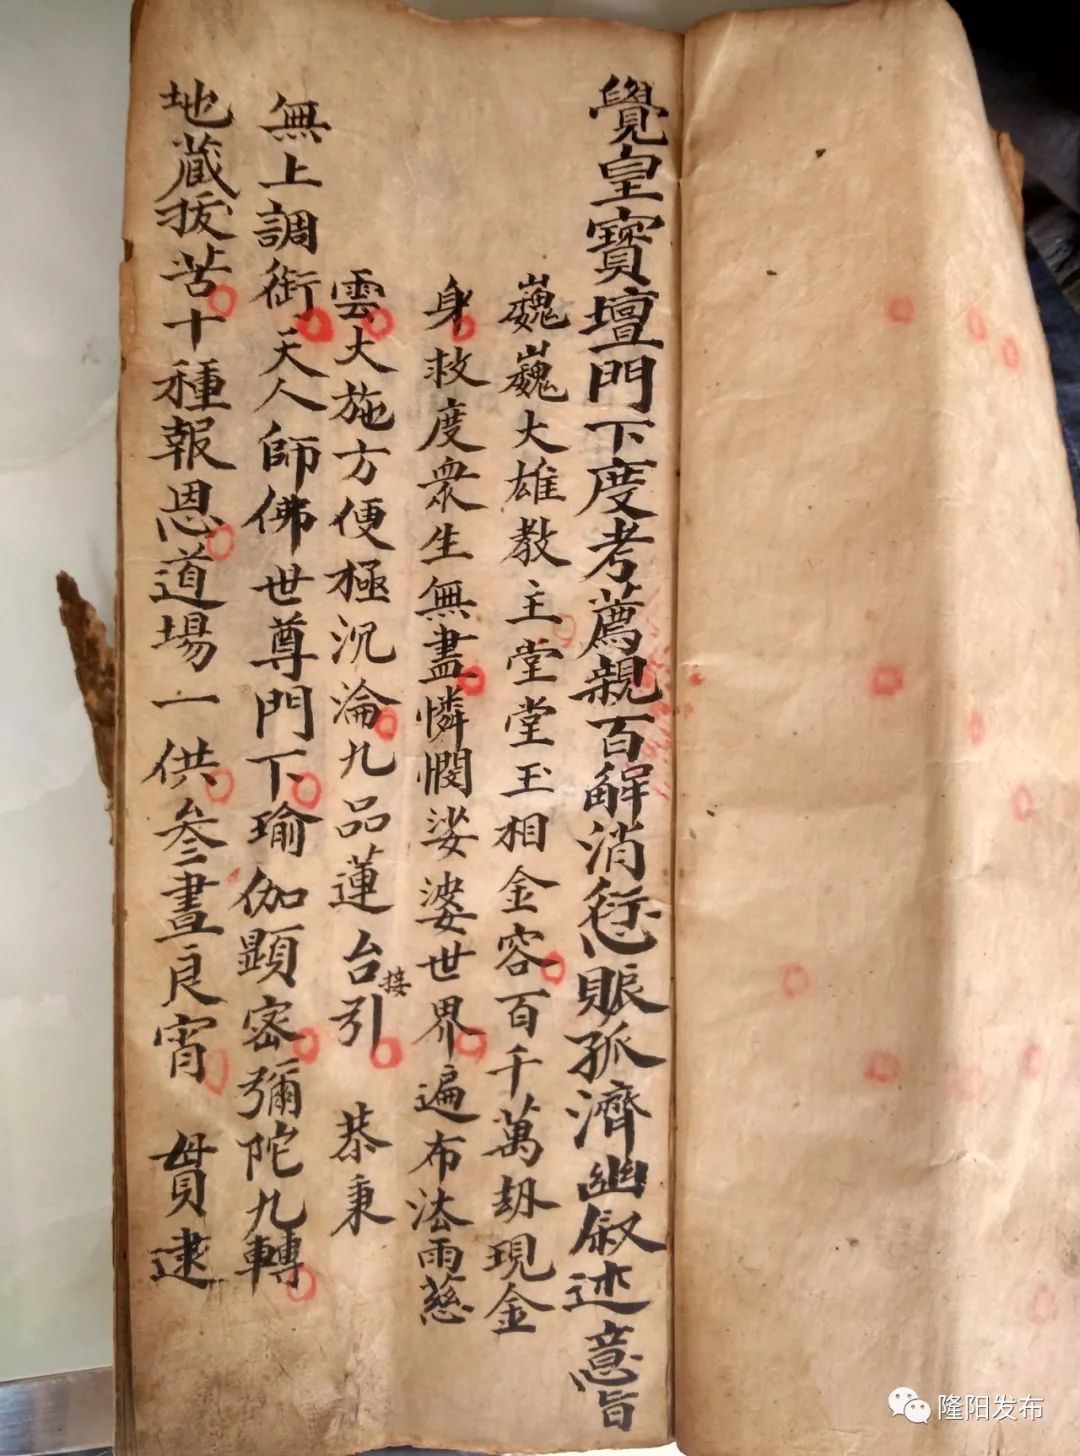 覺皇寶壇門下度考薦親百解消愆賑孤濟幽叙述意旨
巍巍大雄教主堂堂玉相金容百千萬劫現金
身救度衆生無盡憐憫娑婆世界遍布法雨慈
雲大施方便極沉淪九品蓮台接引 恭秉
無上調御天人師佛世尊門下瑜伽顯密彌陀九轉
地藏拔苦十種報恩道場一供叁晝良宵 貫逮
隆阳发布